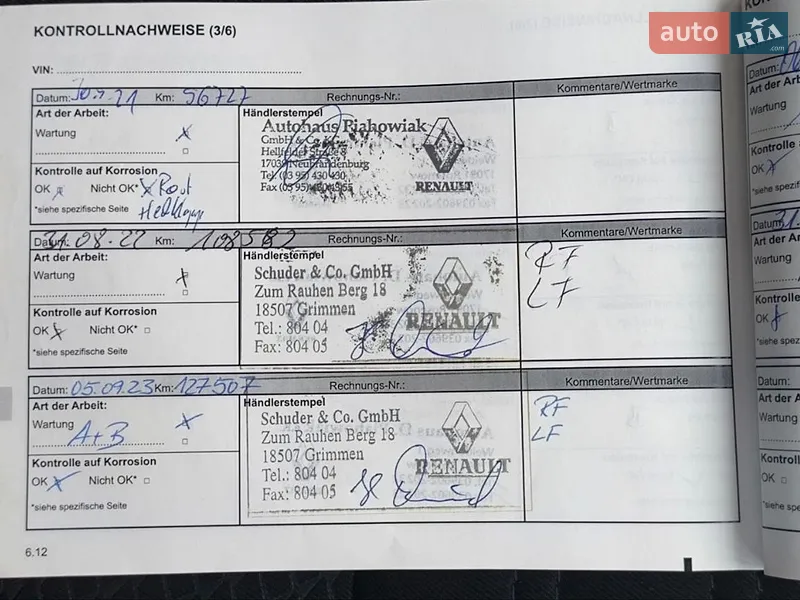 auto RIA .com
KONTROLLNACHWEISE (3/6)
VIN:
Datum: Km: 96727 Rechnungs-Nr.: Kommentare/Wertmarke
Art der Arbeit:
Wartung x
Kontrolle auf Korrosion
OK x Nicht OK* x Rost
*siehe spezifische Seite
Händlerstempel
Autohaus Fiahowiak
GmbH & Co. KG
Hellfelder Straße 8
17039 Neubrandenburg
Tel. (03 95) 430 430
Fax (03 95)
RENAULT
Datum: 31.08.22 Km: Rechnungs-Nr.: Kommentare/Wertmarke
Art der Arbeit:
Wartung x
Kontrolle auf Korrosion
OK x Nicht OK*
*siehe spezifische Seite
Händlerstempel
Schuder & Co. GmbH
Zum Rauhen Berg 18
18507 Grimmen
Tel.: 804 04
Fax: 804 05
RENAULT
RF
LF
Datum: 05.09.23 Km: 127507 Rechnungs-Nr.: Kommentare/Wertmarke
Art der Arbeit:
Wartung x
A+B
Kontrolle auf Korrosion
OK x Nicht OK*
*siehe spezifische Seite
Händlerstempel
Schuder & Co. GmbH
Zum Rauhen Berg 18
18507 Grimmen
Tel.: 804 04
Fax: 804 05
RENAULT
RF
LF
6.12
Datum:
Art der
Wartung
Kontrolle
OK x
*siehe spezi
Datum:
Art der A
Wartung
Kontrolle
OK
*siehe spez
Datum:
Art der A
Wartung
Kontroll
OK
*siehe sp